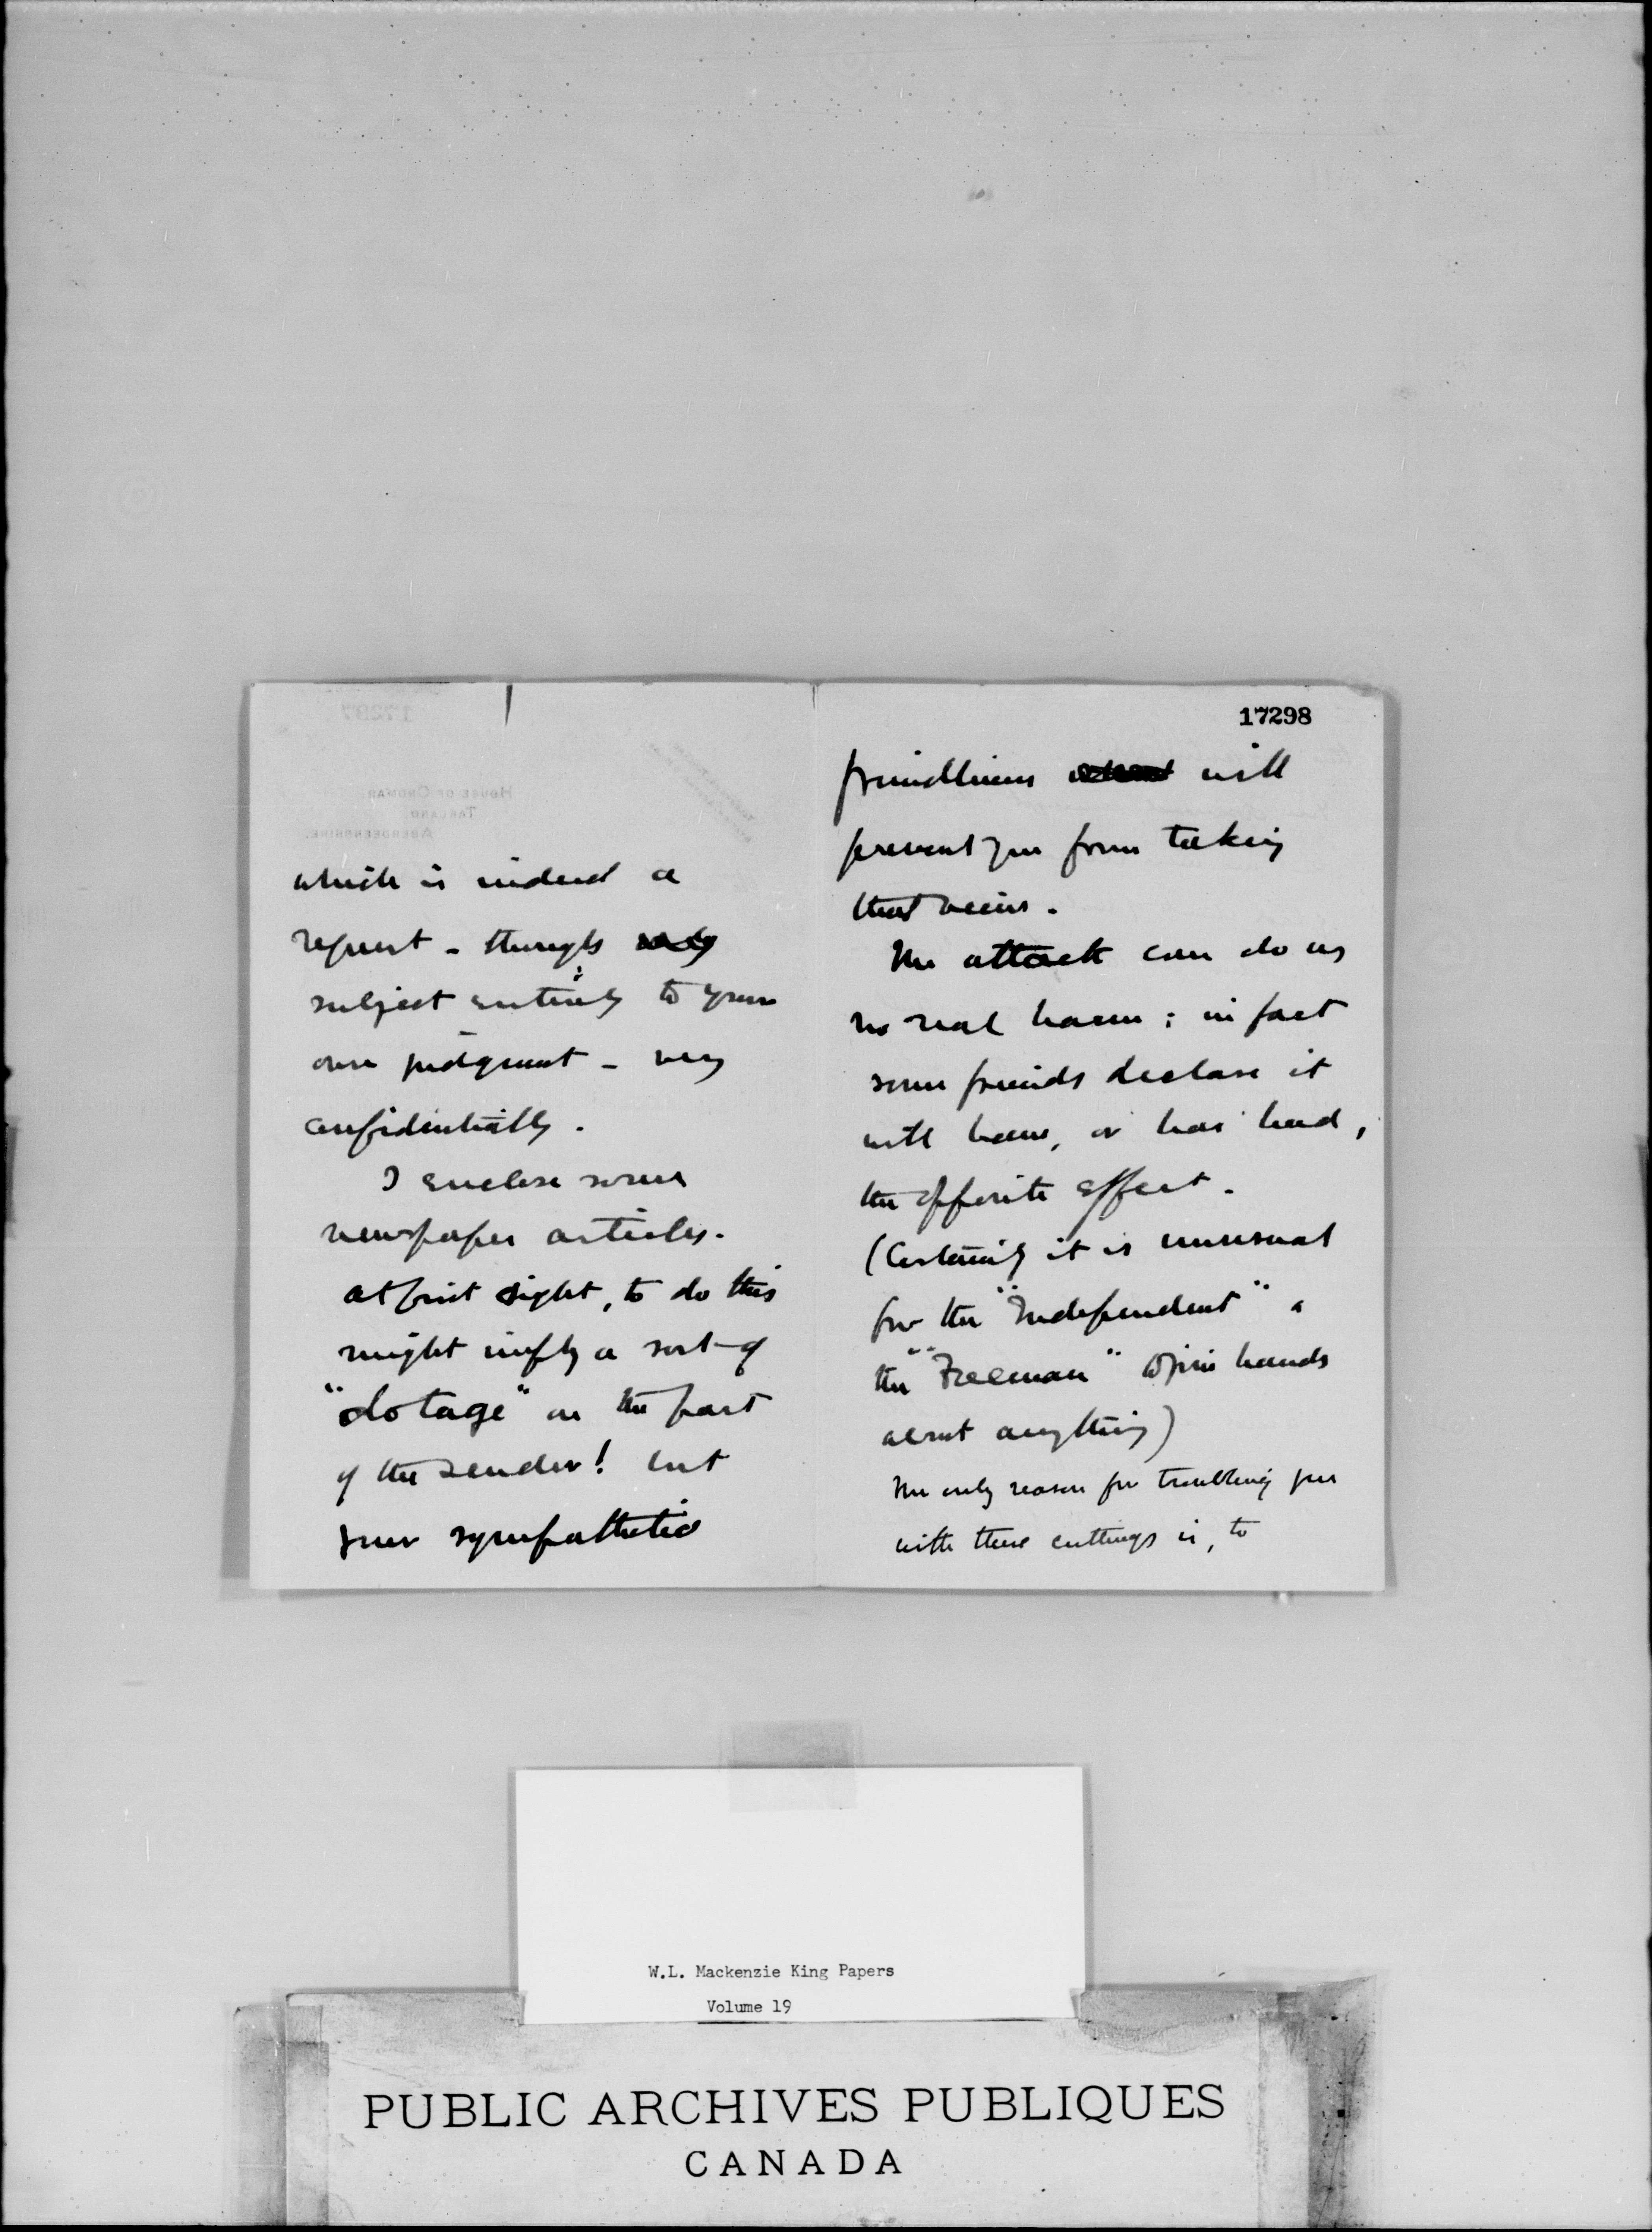 which is indeed a
request - though
subject entirely to your
own judgment - very
confidentially.
I enclose some
newspaper articles.
At first sight, to do this
might imply a sort of
"dotage" on the part
of the sender! but
your sympathetic
17298
friendliness will
prevent you from taking
that view.
The attack can do us
no real harm; in fact
some friends declare it
will have, or has had,
the opposite effect.
(Certainly it is unusual
for the "Independent" &
the "Freeman" to join hands
about anything)
The only reason for troubling you
with these cuttings is, to
W.L. Mackenzie King Papers
Volume 19
PUBLIC ARCHIVES PUBLIQUES
CANADA